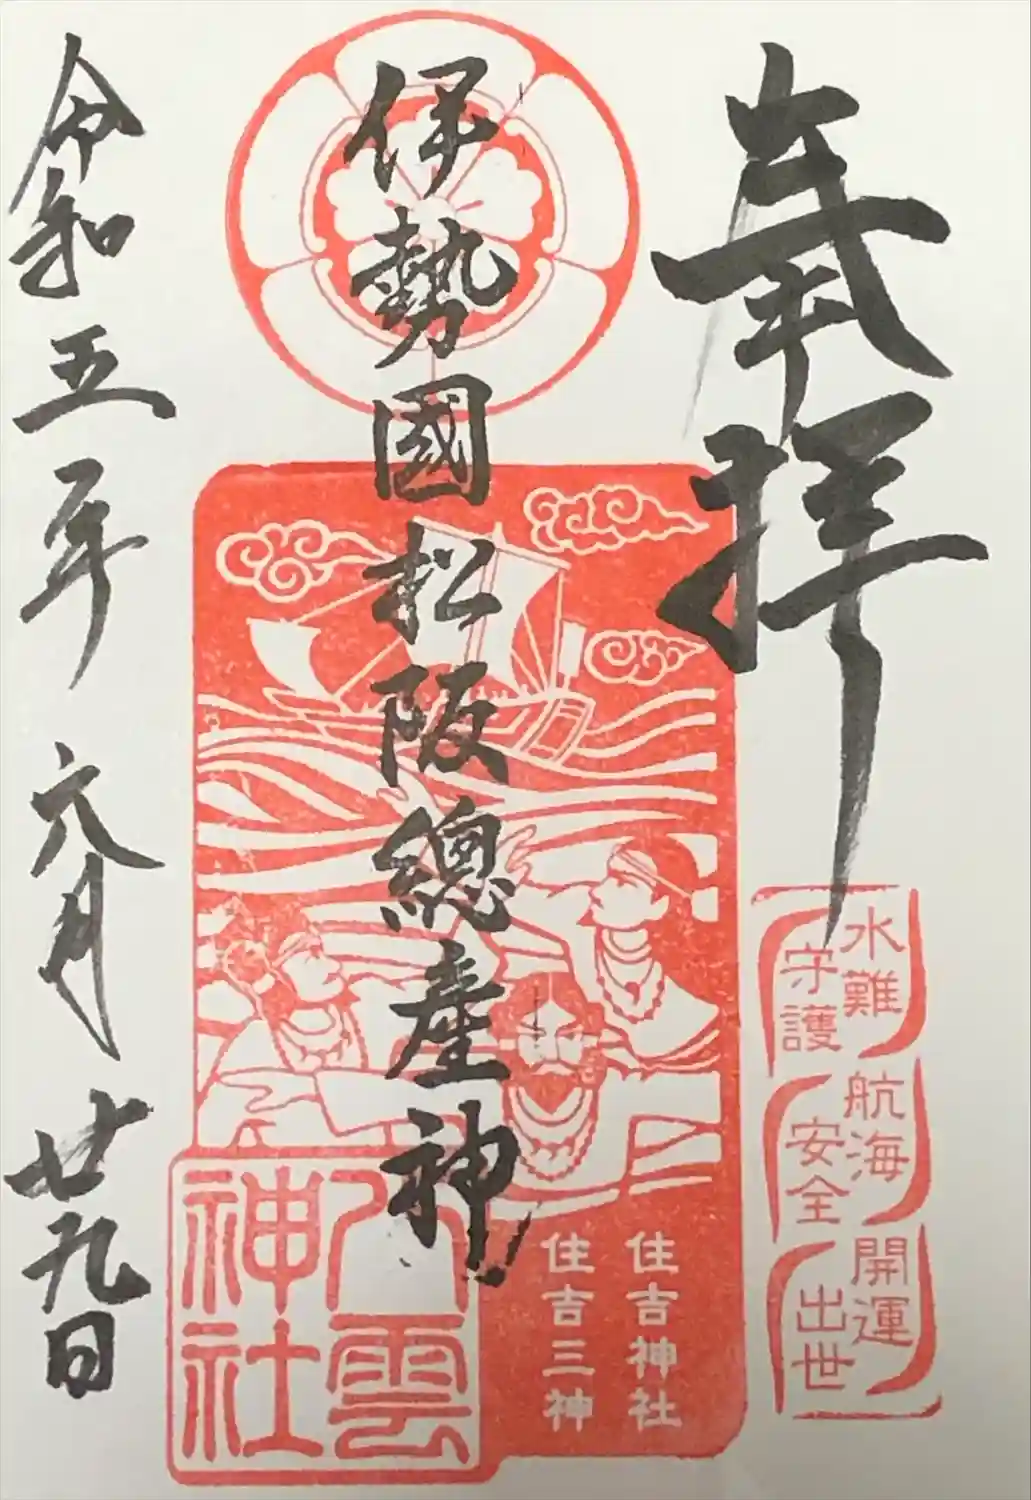 奉拝
水難守護
航海安全
開運出世
伊勢國松阪總産神
住吉神社
住吉三神
八雲神社
令和五年六月廿九日